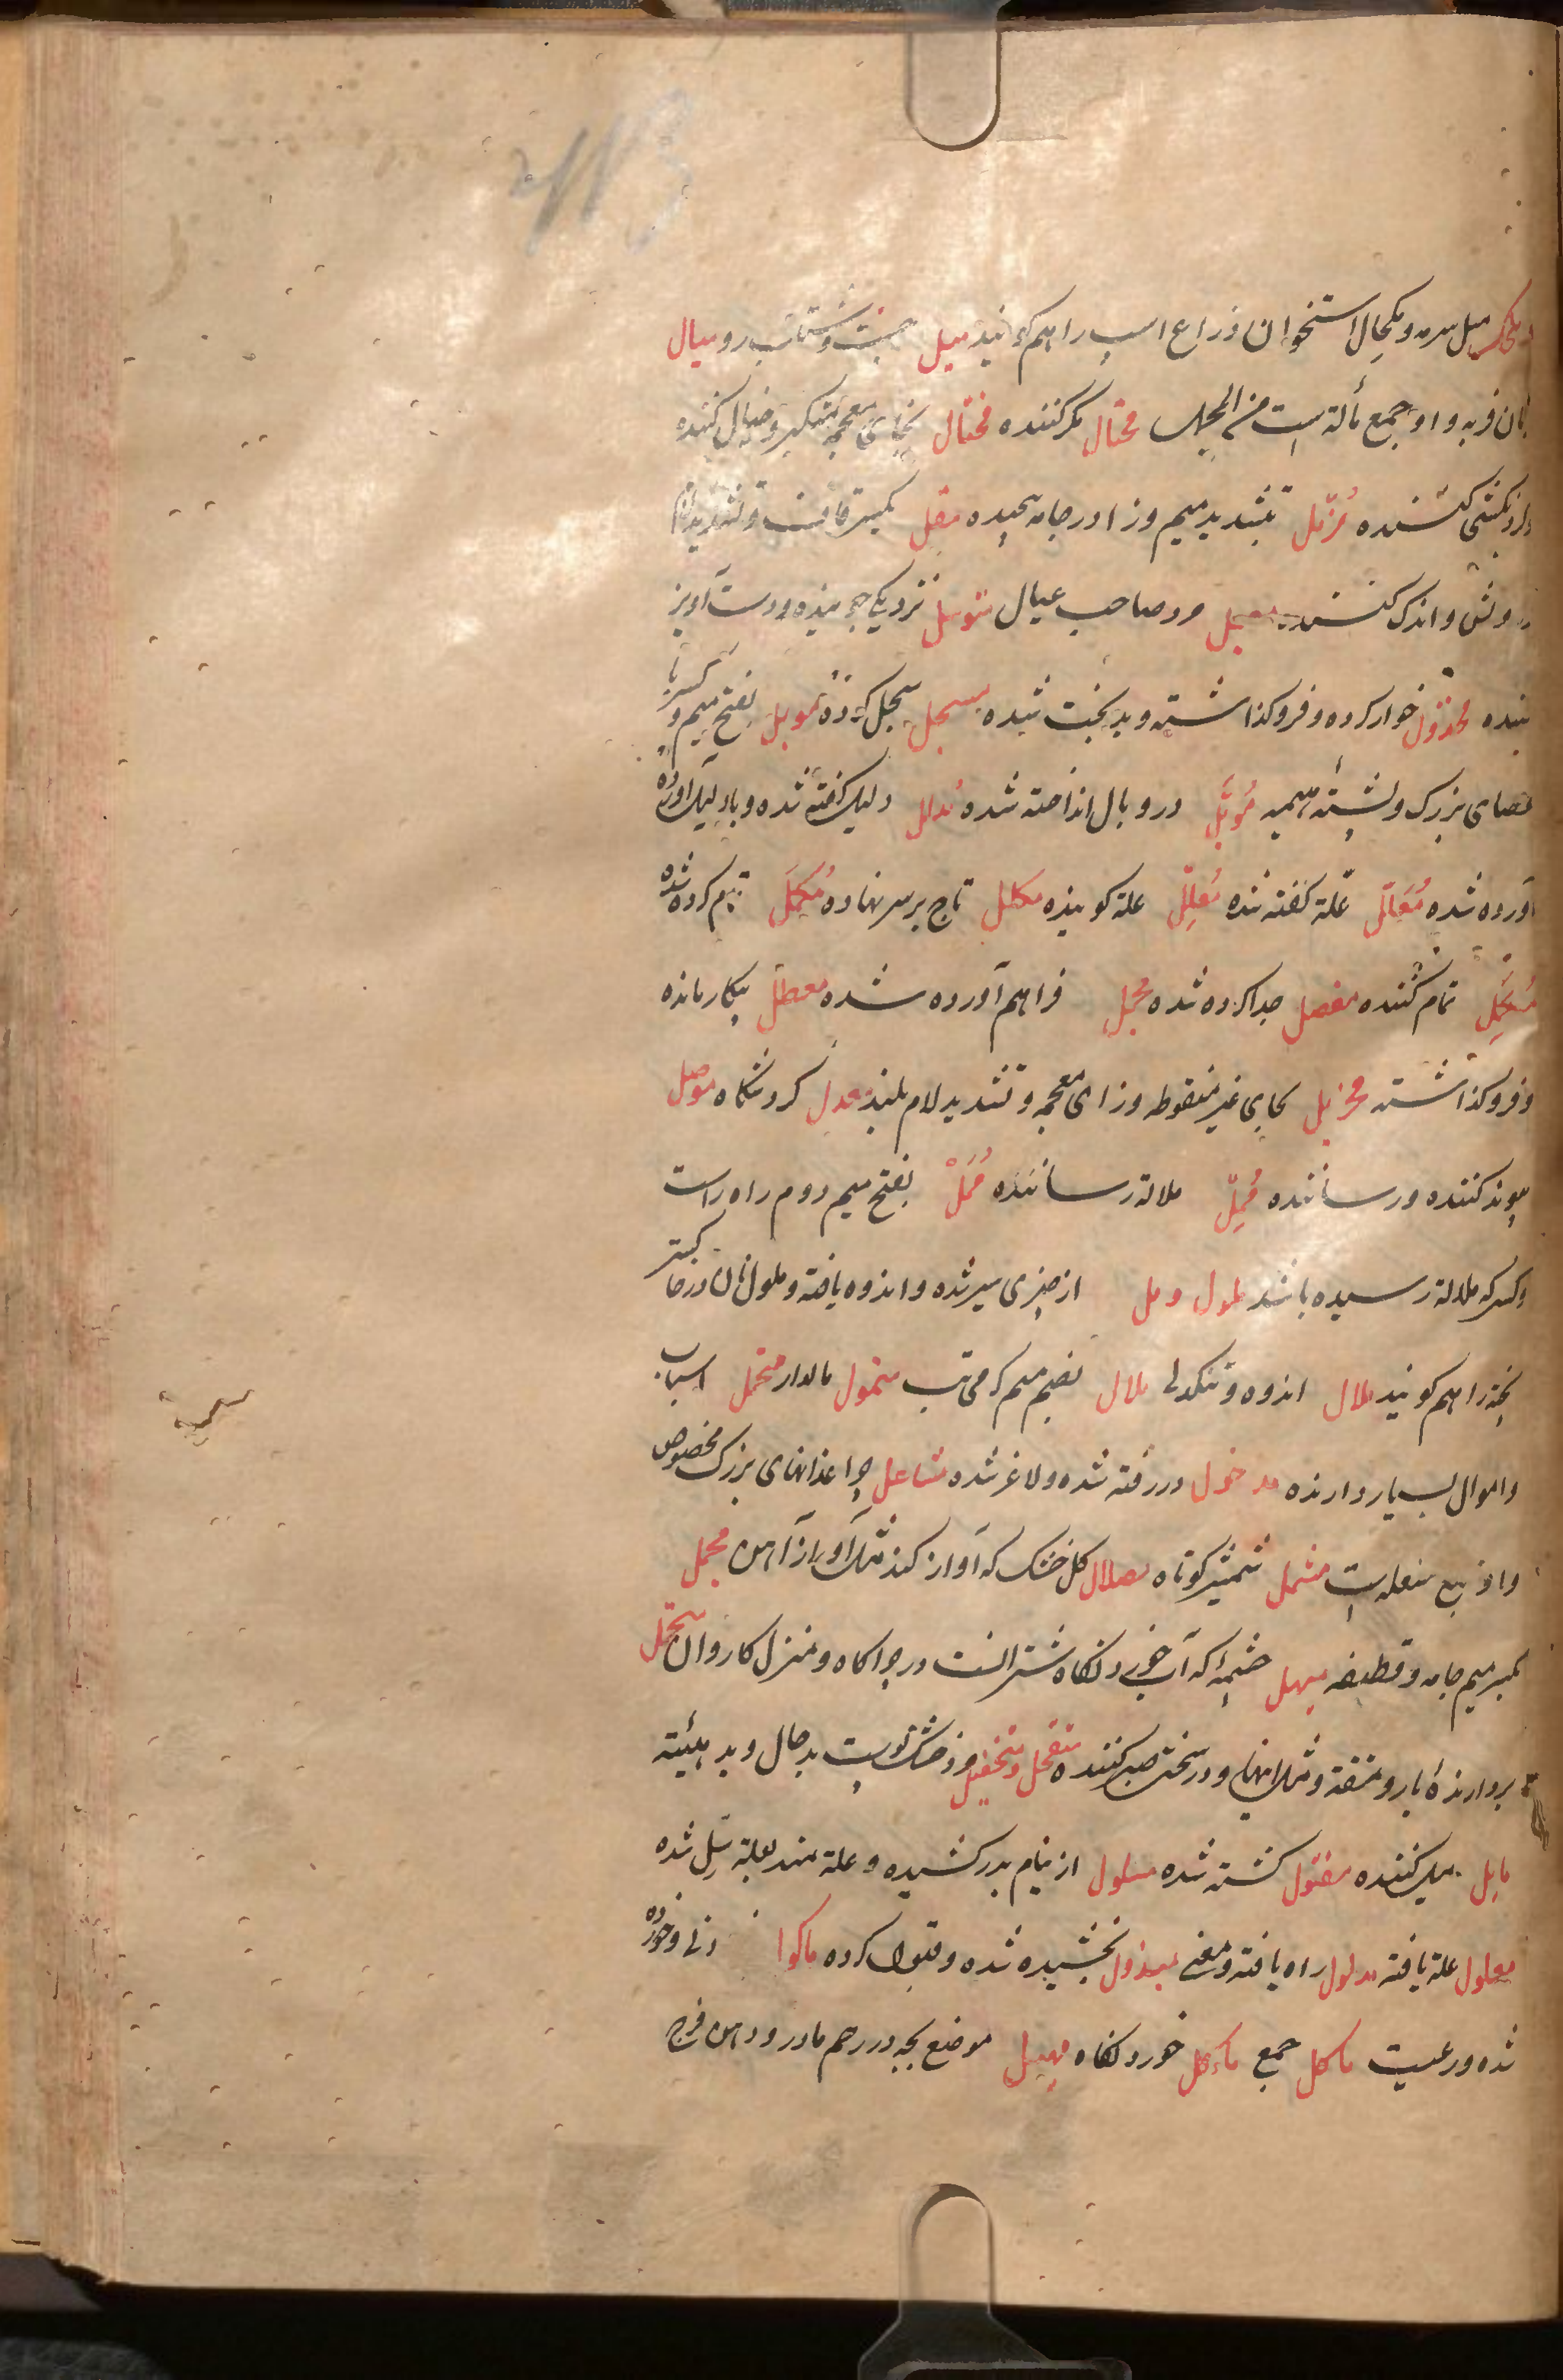 میل سرمه و مکحال استخوان ذراع اسپ را هم کویند میل جنبش و شتاب رو میال
زنان فربه و او جمع مألة است من المجمل محتال مکر کننده مختال بخای معجمه متکبر و خیال کننده
و کردنکشی کننده مُزمّل بتشدید میم و زا در جامه پیچیده مقل بکسر قاف و تشدید لام
درویش و اندک کننده معیل مرد صاحب عیال متوسل نزدیکی جوینده و دست آویز
کننده مخذول خوار کرده و فرو کذاشته و بدبخت شده مسجل سجل کرده موبل بفتح میم و کسر با
عصای بزرک و پشتهٔ هیمه مُوبَّل در وبال انداخته شده مدلل دلیل کفته شده و با دلیل آورده
آورده شده مُعَلّل علة کفته شده مُعلِّل علة کوینده مکلل تاج بر سر نهاده مُکمَّل تمام کرده شده
مُکمِّل تمام کننده مفصل جدا کرده شده مجمل فراهم آورده شده معطل بیکار مانده
و فرو کذاشته محزئل بحای غیر منقوطه و زای معجمه و تشدید لام بلند معدل کردشکاه موصل
پیوند کننده و رساننده مُمِلّ ملالة رساننده مُمَلّ بفتح میم دوم راه راست
و کسی که ملالة رسیده باشد ملول و مل از چیزی سیر شده و اندوه یافته و ملول نان در خاکستر
پخته را هم کویند ملال اندوه و تنکدلی ملال بضم میم کرمی تب متمول مالدار متحمل اسباب
و اموال بسیار دارنده مدخول در رفته شده و لاغر شده مشاعل چراغدانهای بزرک مخصوص
و او جمع مشعله است مشمل شمشیر کوتاه صلصال کل خشک که آواز کند مثل آواز آهن محمل
بکسر میم جامه و قطیفه منهل چشمهٔ که آب خوردنکاه شترانست در چراکاه و منزل کاروان متحمل
بردارندهٔ بار و مشقة و مثل اینها و در سختی صبر کننده متقحل و متخفیل مرد خشک پوست بدحال و بد هیئة
مایل میل کننده مقتول کشته شده مسلول از نیام بدر کشیده و علة مند بعلة سل شده
معلول علة یافته مدلول راه یافته و معنی مبذول بخشیده شده و قبول کرده ماکول خوردنی و خورده
شده و رعیت مآکل جمع ماکل خوردنکاه مهبل موضع بچه در رحم مادر و دهن فرج